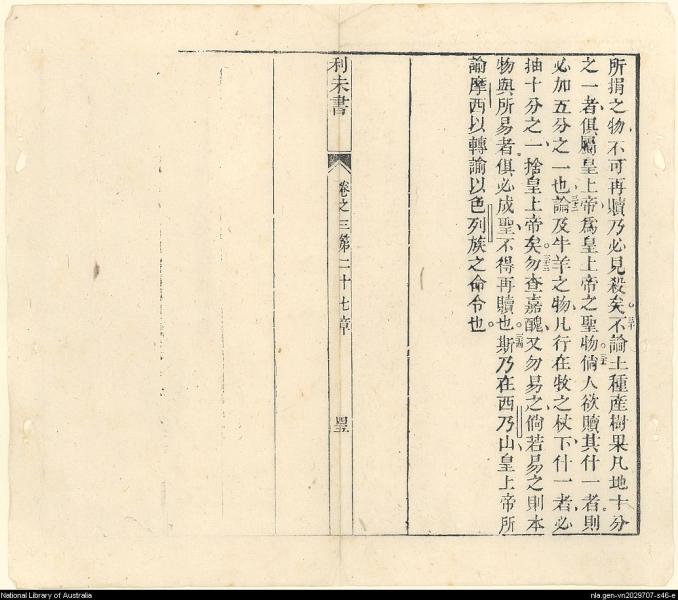 所捐之物不可再贖乃必見殺矣三十不論土種產樹果凡地十分
之一者俱屬皇上帝為皇上帝之聖物三一倘人欲贖其什一者則
必加五分之一也三二論及牛羊之物凡行在牧之杖下什一者必
抽十分之一捨皇上帝矣三三勿查嘉醜又勿易之倘若易之則本
物與所易者俱必成聖不得再贖也三四斯乃在西乃山皇上帝所
諭摩西以轉諭以色列族之命令也
利未書
卷之三第二十七章
National Library of Australia
nla.gen-vn2029707-s46-e